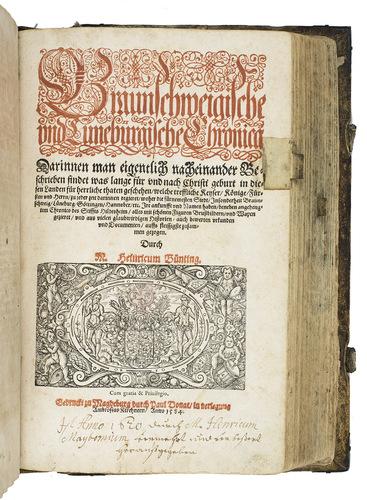 Braunschweigische
vnd Luneburgische Chronica
Darinnen man eigentlich nacheinander Be-
schrieben findet was lange für vnd nach Christi geburt in die-
sen Landen für herrliche thaten geschehen / welche treffliche Keyser / Könige / Für-
sten vnd Herrn / zu jeder zeit darinnen regieret / woher die fürnemesten Stedte / Insonderheit Braun-
schweig / Lüneburg / Göttingen / Hannober / etc. Ire ankunfft vnd Namen haben / beneben angeheng-
ten Chronica des Stiffts Hildesheim / alles mit schönen Figuren Brustbildern / vnd Wapen
gezieret / vnd aus vielen glaubwirdigen Historien / auch bewerten vrkunden
vnd Documenten / auffs fleissigste zusam-
men gezogen.
Durch
M. Heinricum Bünting.
Cum gratia & Priuilegio.
Gedruckt zu Magdeburg durch Paul Donat / in verlegung
Ambrosius Kirchners / Anno 1584.
Anno 1620 durch M. Henricum
Maybomium vermehrt und
herausgegeben